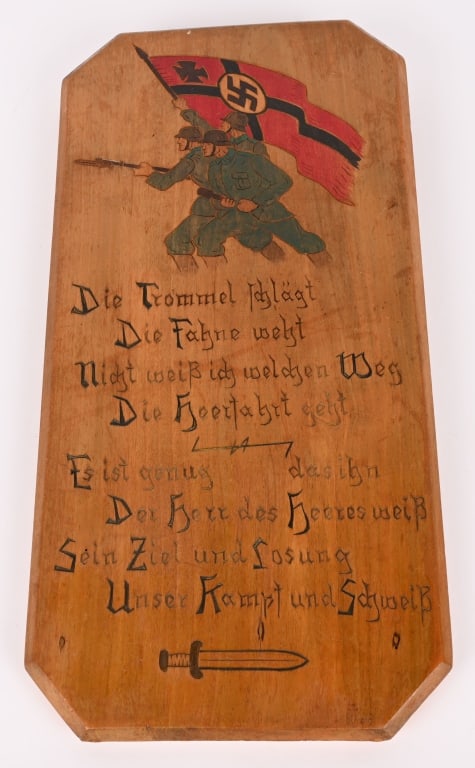 Die Trommel schlägt
Die Fahne weht
Nicht weiß ich welchen Weg
Die Heerfahrt geht...
Es ist genug das ihn
Der Herr des Heeres weiß
Sein Ziel und Losung
Unser Kampf und Schweiß